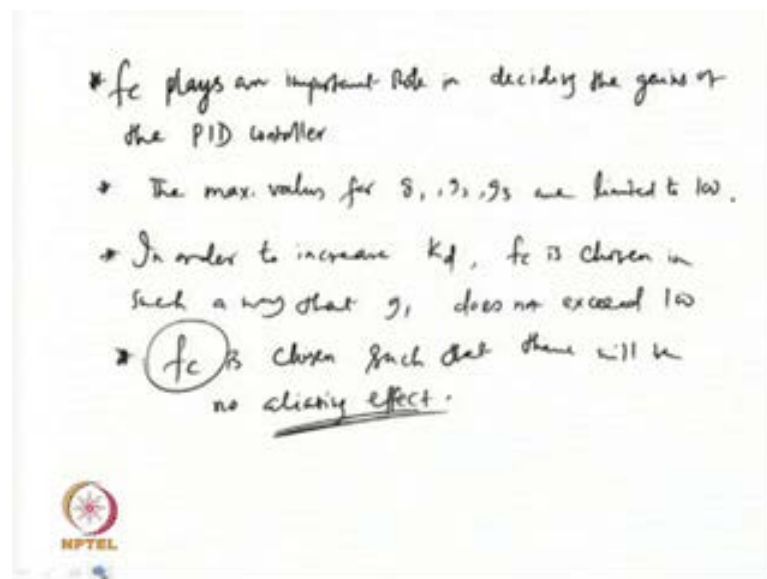 * fc plays an important Role in deciding the gains of
the PID controller
* The max. values for g1, g2, g3 are limited to 100.
* In order to increase Kd, fc is chosen in
such a way that g1 does not exceed 100
* fc is chosen such that there will be
no aliasing effect.
NPTEL